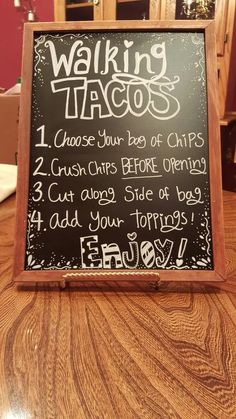 Walking
TACOS
1. Choose Your bag of Chips
2. Crush Chips BEFORE Opening
3. Cut along Side of bag
4. add Your toppings!
Enjoy!